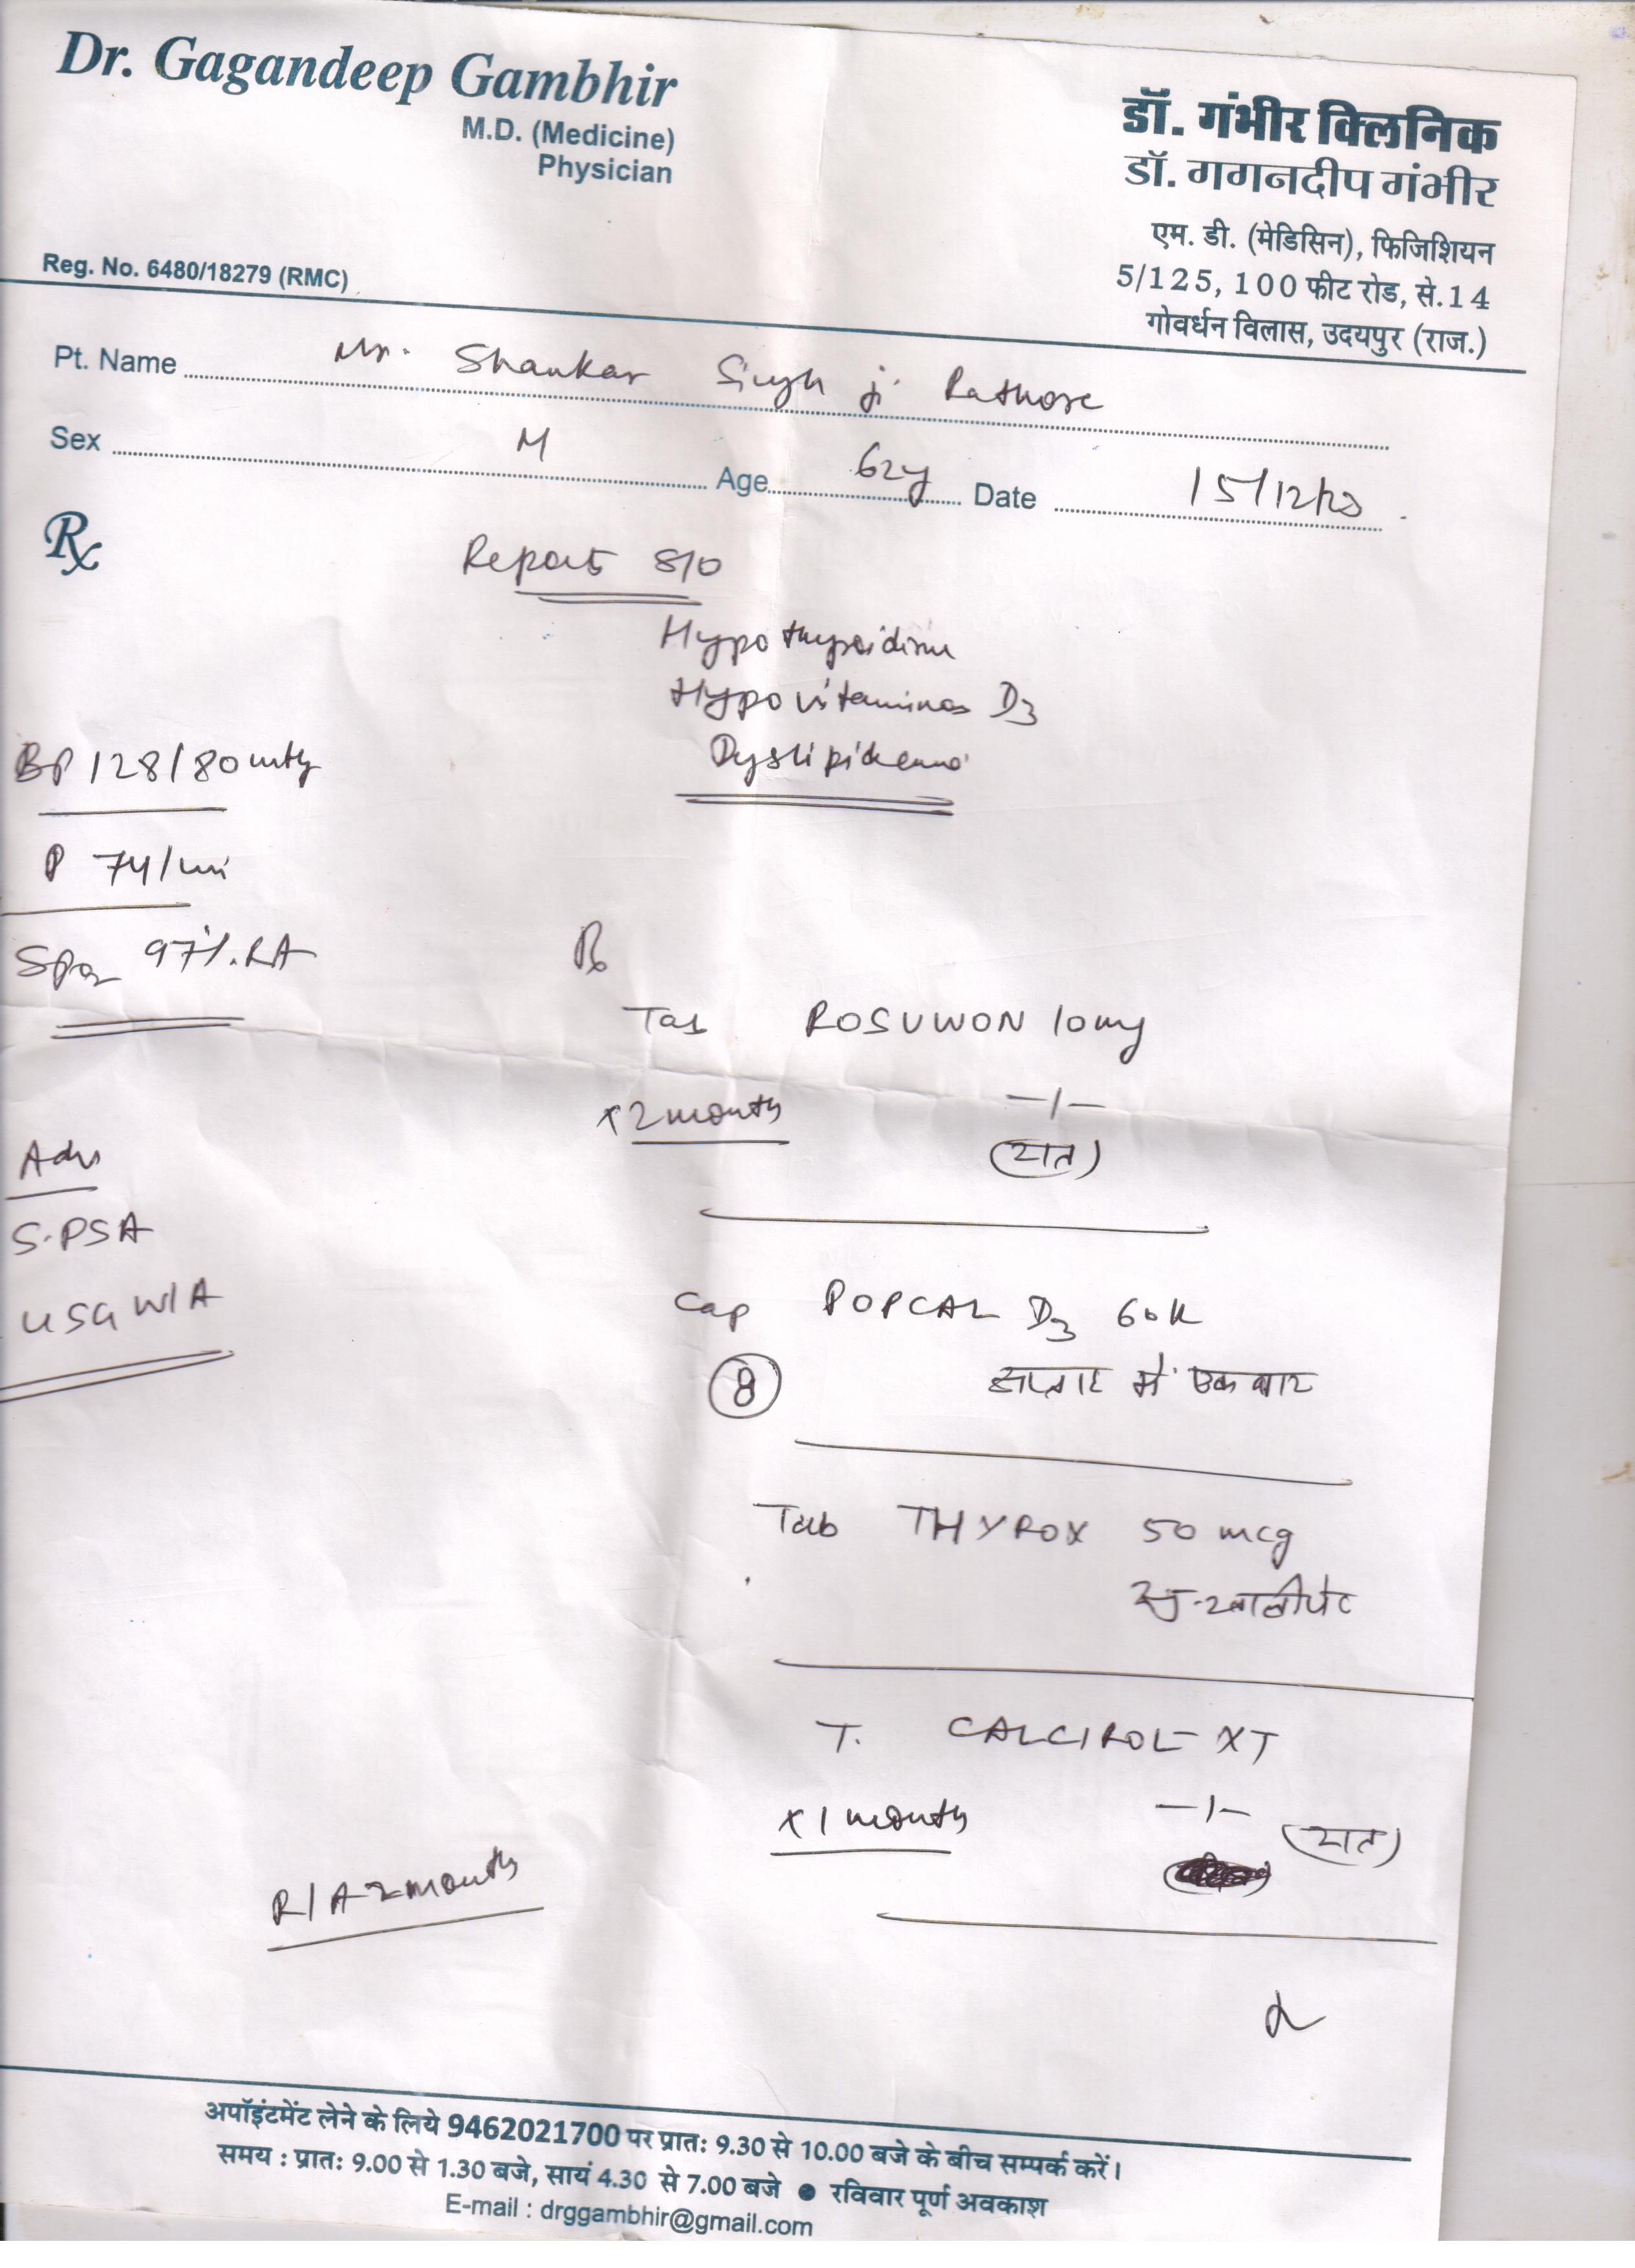 Dr. Gagandeep Gambhir
M.D. (Medicine)
Physician
Reg. No. 6480/18279 (RMC)
डॉ. गंभीर क्लिनिक
डॉ. गगनदीप गंभीर
एम. डी. (मेडिसिन), फिजिशियन
5/125, 100 फीट रोड, से.14
गोवर्धन विलास, उदयपुर (राज.)
Pt. Name Mr. Shankar Singh ji Rathore
Sex M Age 62y Date 15/12/23
Rx
Reports S/O
Hypothyroidism
Hypovitaminos D3
Dyslipidemia
BP 128/80 mmHg
P 74/min
SpO2 97% RA
Rx
Tab ROSUWON 10mg
x 2 month —1—
(रात)
Adv
S. PSA
USG W/A
Cap POPCAL D3 60K
8 सप्ताह में एक बार
Tab THYROX 50 mcg
सु. खाली पेट
T. CALCIROL-XT
x 1 month —1— (रात)
R/A 2 month
अपॉइंटमेंट लेने के लिये 9462021700 पर प्रातः 9.30 से 10.00 बजे के बीच सम्पर्क करें।
समय : प्रातः 9.00 से 1.30 बजे, सायं 4.30 से 7.00 बजे ● रविवार पूर्ण अवकाश
E-mail : drggambhir@gmail.com